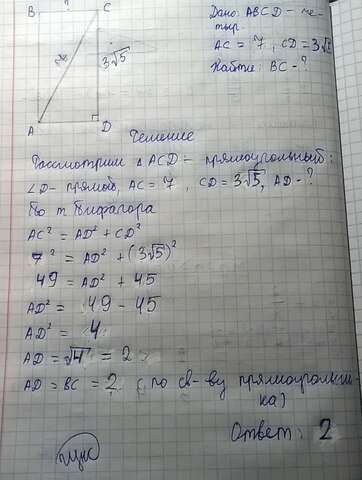 B ? C
Дано: ABCD – че-
тыр.
AC = 7, CD = 3√5
Найти: BC - ?
3√5
A D
Решение
Рассмотрим △ ACD – прямоугольный:
∠D – прямой, AC = 7, CD = 3√5, AD - ?
По т. Пифагора
AC² = AD² + CD²
7² = AD² + (3√5)²
49 = AD² + 45
AD² = 49 - 45
AD² = 4
AD = √4 = 2
AD = BC = 2 (по св-ву прямоугольни
ка)
Ответ: 2